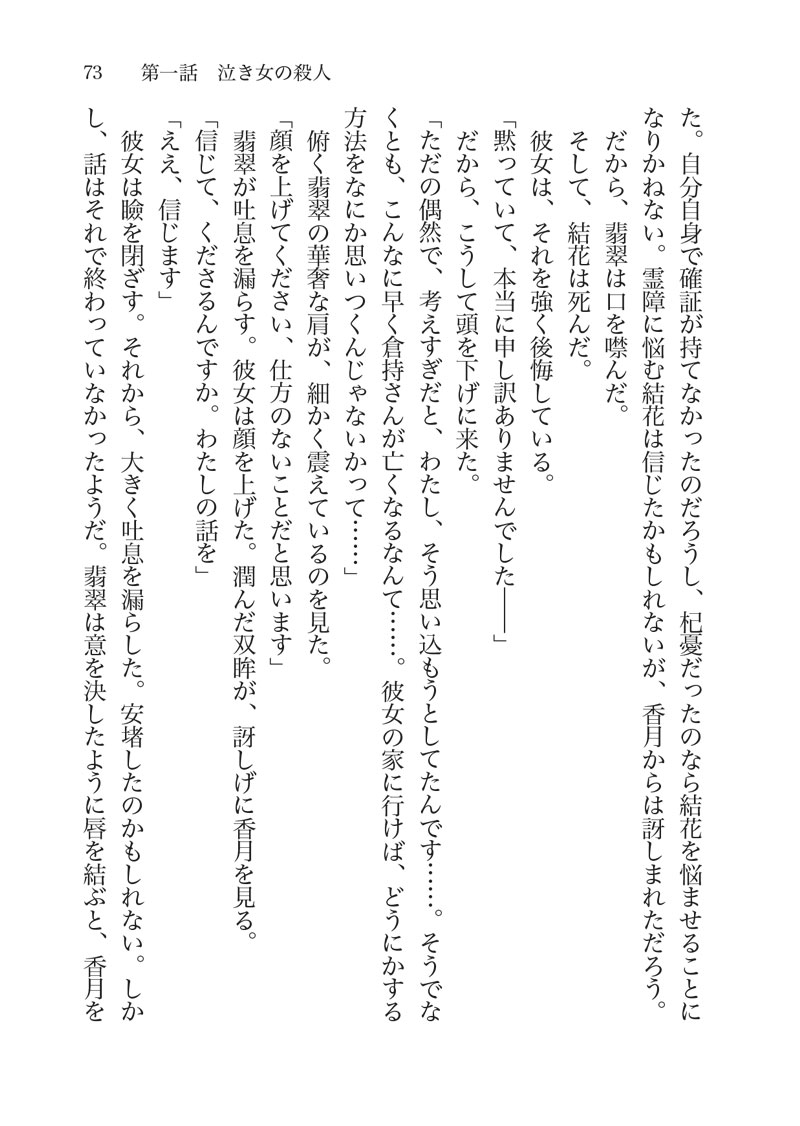 73　第一話　泣き女の殺人
た。自分自身で確証が持てなかったのだろうし、杞憂だったのなら結花を悩ませることに
なりかねない。霊障に悩む結花は信じたかもしれないが、香月からは訝しまれただろう。
　だから、翡翠は口を噤んだ。
　そして、結花は死んだ。
　彼女は、それを強く後悔している。
「黙っていて、本当に申し訳ありませんでした――」
　だから、こうして頭を下げに来た。
「ただの偶然で、考えすぎだと、わたし、そう思い込もうとしてたんです……。そうでな
くとも、こんなに早く倉持さんが亡くなるなんて……。彼女の家に行けば、どうにかする
方法をなにか思いつくんじゃないかって……」
　俯く翡翠の華奢な肩が、細かく震えているのを見た。
「顔を上げてください、仕方のないことだと思います」
　翡翠が吐息を漏らす。彼女は顔を上げた。潤んだ双眸が、訝しげに香月を見る。
「信じて、くださるんですか。わたしの話を」
「ええ、信じます」
　彼女は瞼を閉ざす。それから、大きく吐息を漏らした。安堵したのかもしれない。しか
し、話はそれで終わっていなかったようだ。翡翠は意を決したように唇を結ぶと、香月を